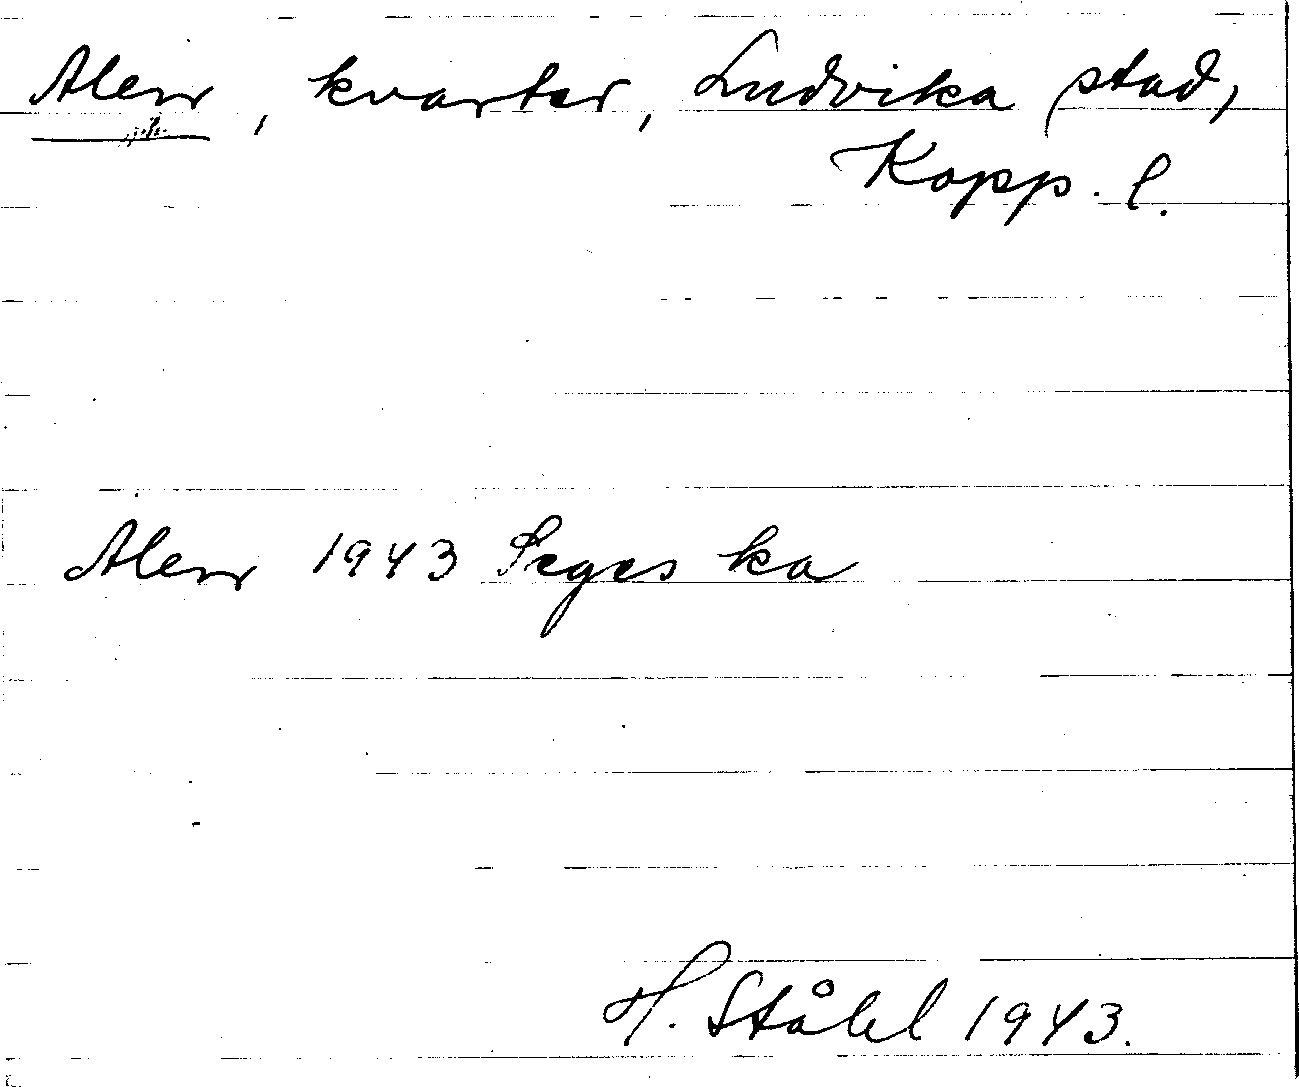 Alen, kvarter, Ludvika stad,
Kopp. l.
Alen 1943 Seges ka
H. Ståhl 1943.